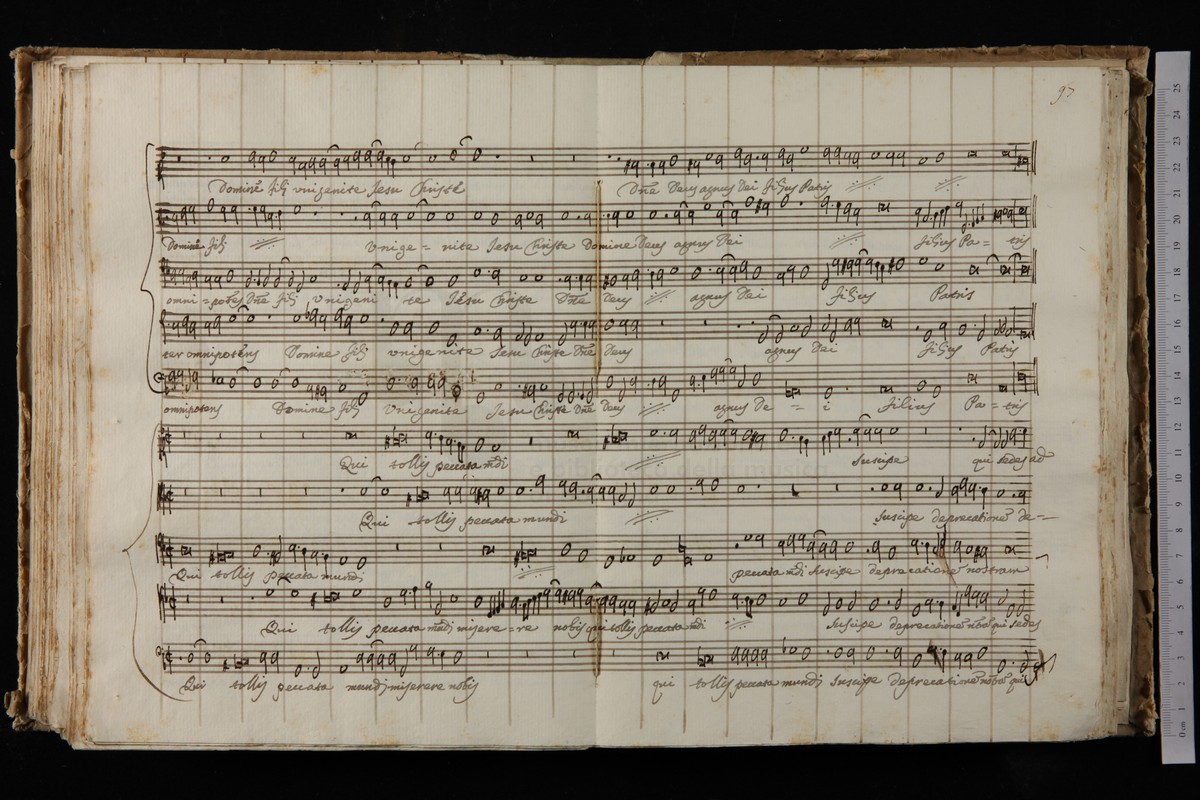 97
Dominé fili unigenite Jesu Christé Dñe Deus agnus Dei filius Patris
Dominé fili unige = nite Jesu Christe Domine Deus agnus Dei filius Pa = tris
omni = potes Dñe fili unigeni te Jesu Christe Dñe Deus agnus Dei filius Patris
ter omnipotens Domine fili unigenite Jesu Christe Dñe Deus agnus Dei filius Patris
omnipotens Domine fili Unigenita Jesu Christe Dñe Deus agnus De = i filius Pa = tris
Qui tollis peccata mdi Suscipe qui sedes ad
Qui tollis peccata mundi Suscipe deprecationé de-
Qui tollis peccata mundi peccata mdi Suscipe deprecationé nostram
Qui tollis peccata mudi misere = re nobis qui tollis peccata mdi Suscipe deprecationé qui sedes
Qui tollis peccata mundi miserere nobis qui tollis peccata mundi Suscipe deprecationé qui
biblioteca della musica
25
24
23
22
21
20
19
18
17
16
15
14
13
12
11
10
9
8
7
6
5
4
3
2
1
0 cm